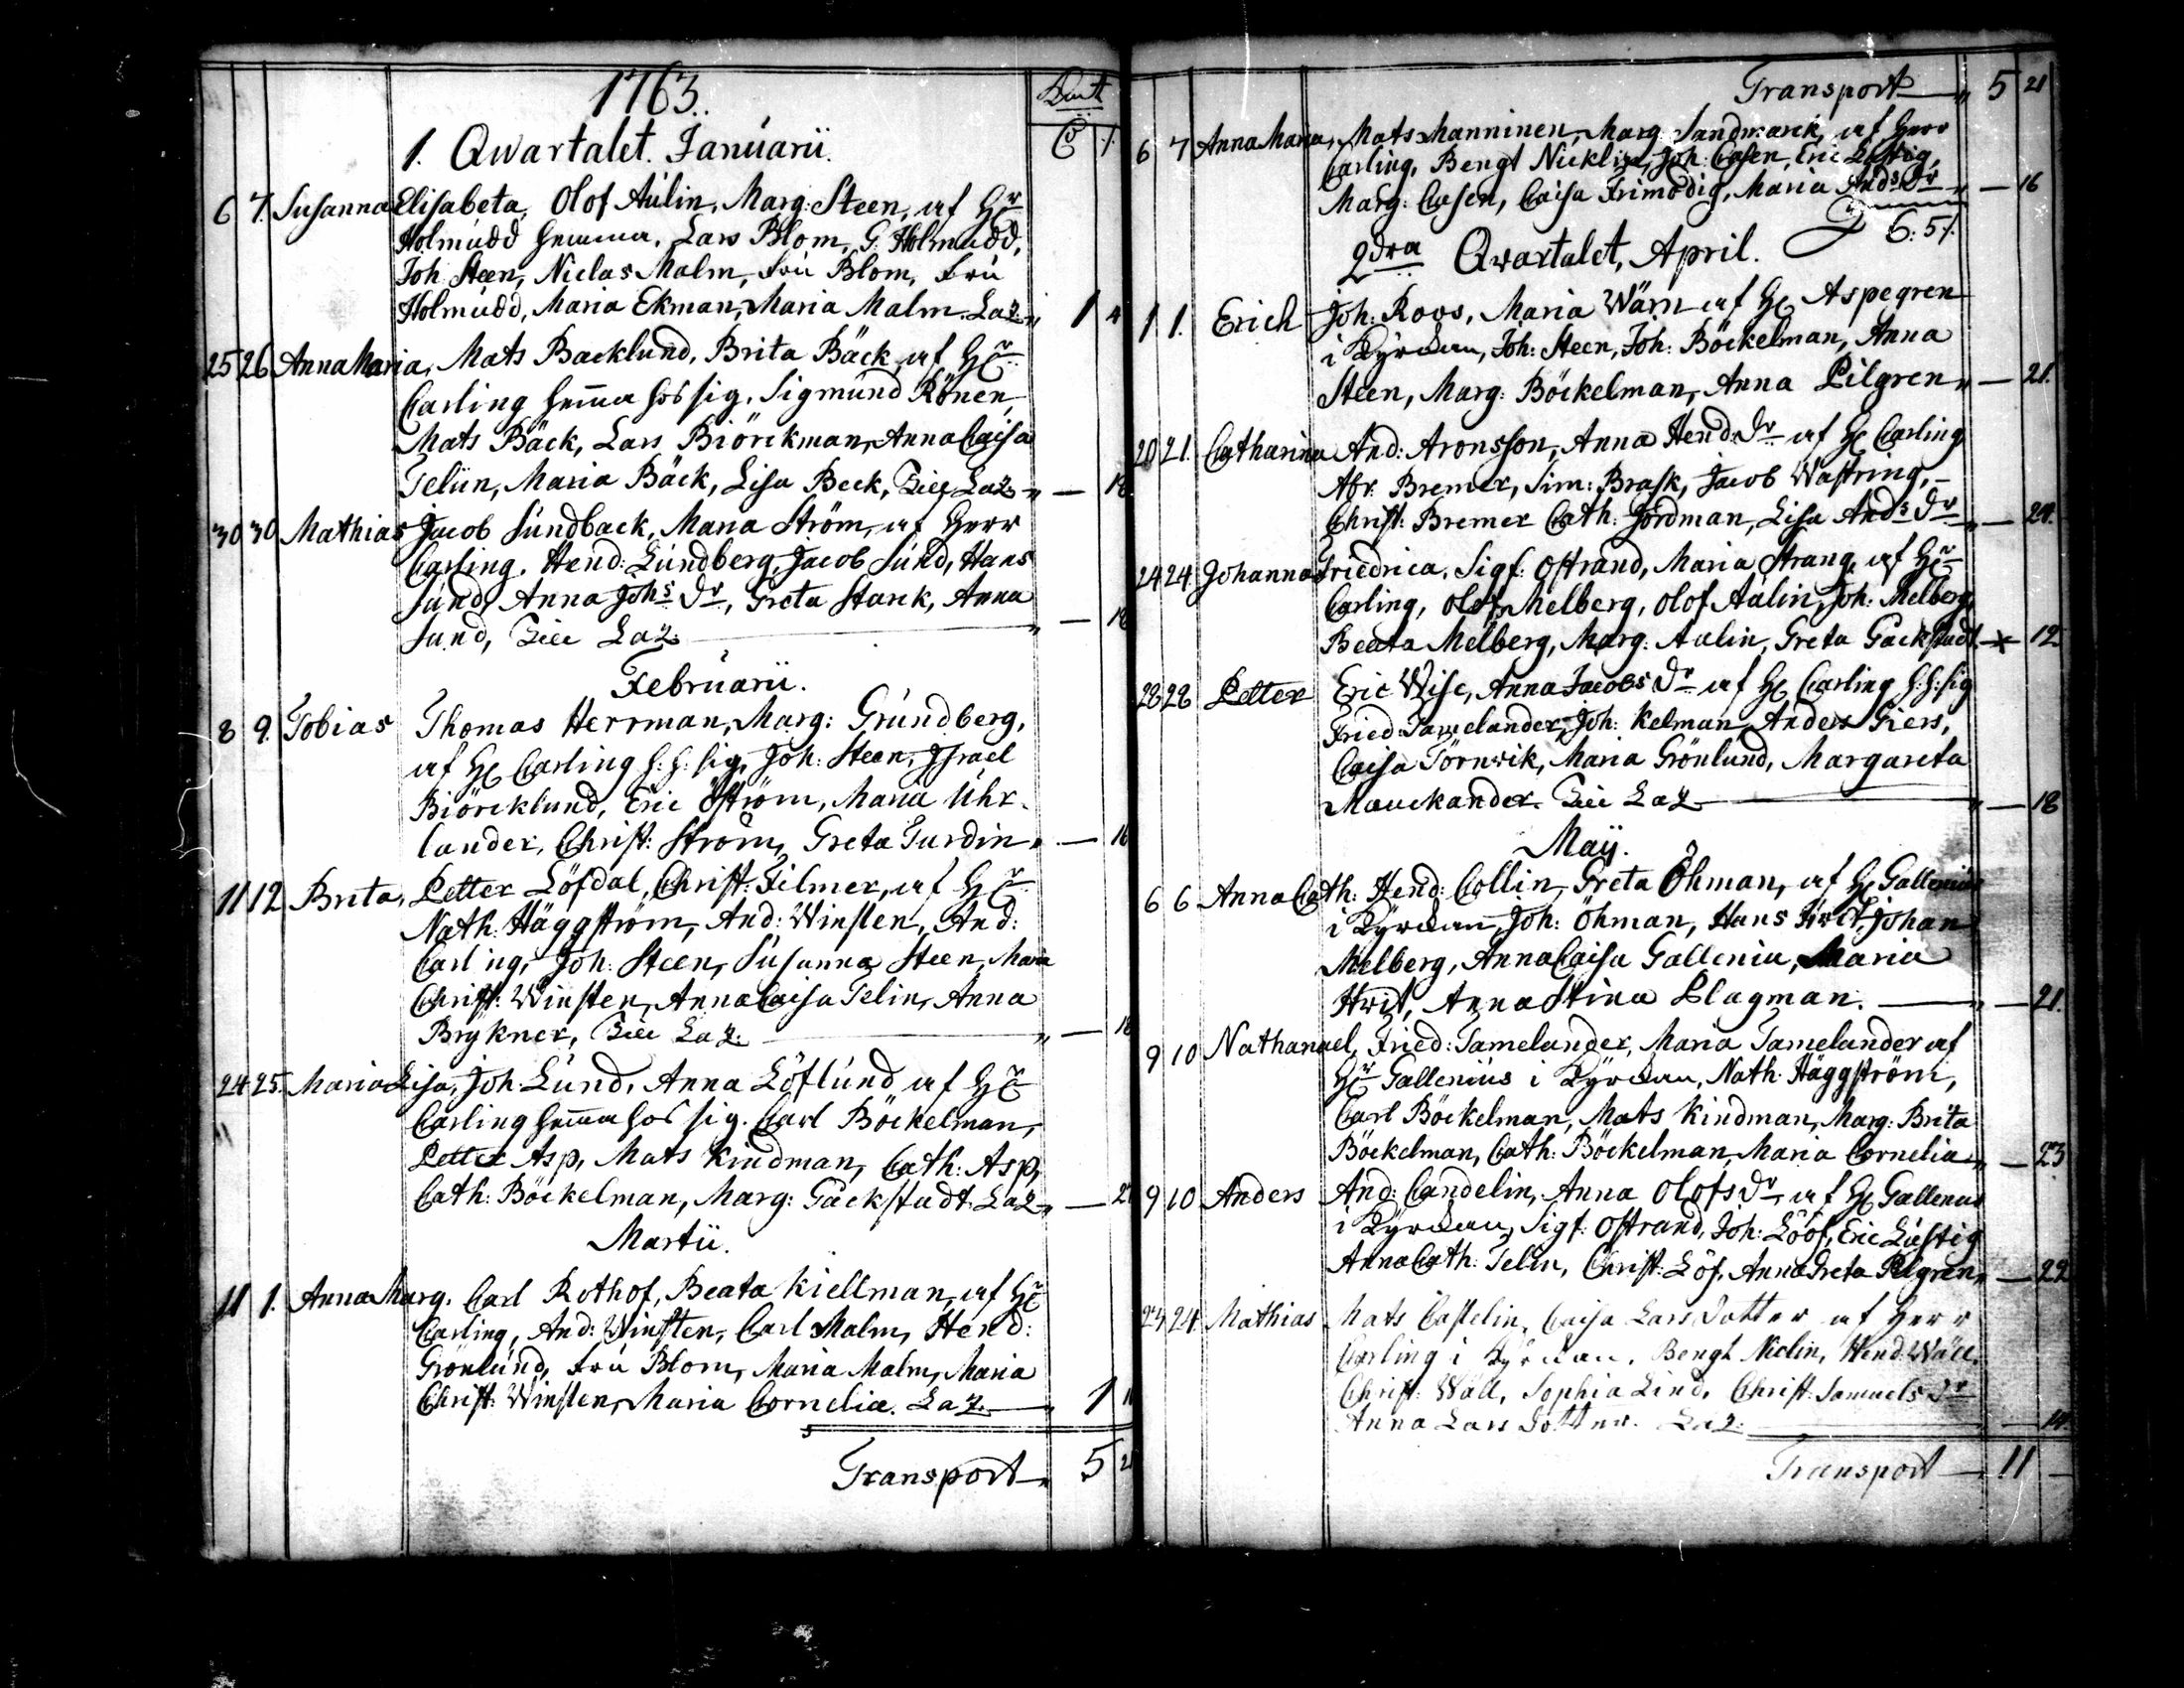 1763.
1. Qwartalet. Januarii.
6 7. Susanna Elisabeta, Olof Aulin, Marg: Steen, af Hr
Holmudd hemma. Lars Blom, G. Holmudd,
Joh Steen, Niclas Malm, Fru Blom, Fru
Holmudd, Maria Ekman, Maria Malm. Laz. 1 4
25 26 Anna Maria, Mats Backlund, Brita Bäck af Hr
Carling hemma hos sig. Sigmund Rönen,
Mats Bäck, Lars Biörckman, Anna Caisa
Telin, Maria Bäck, Lisa Beck, Laz. — 18
30 30 Mathias Jacob Sundback, Maria Ström, af Herr
Carling. Hend: Lundberg, Jacob Sund, Hans
Sund, Anna Johs Dr, Greta Stark, Anna
Sund, Laz. — 18
Februarii.
8 9. Tobias Thomas Herrman, Marg: Grundberg,
af H Carling h: h: sig, Joh: Steen, Israel
Biörcklund, Eric Öström, Maria Uhr-
lander, Christ: Ström, Greta Turdin — 16
11 12 Brita, Petter Löfdal, Christ: Filmer, af Hr
Nath: Häggström, And: Winsten, And:
Carling, Joh: Steen, Susanna Steen, Maria
Christ: Winsten, Anna Caisa Telin, Anna
Brykner, Laz. — 18
24 25. Maria Lisa, Joh: Lund, Anna Löflund af Hr
Carling hemma hos sig. Carl Böckelman,
Petter Asp, Mats Kindman, Cath: Asp,
Cath: Böckelman, Marg: Gäckstadt. Laz —
Martii.
11 1. Anna Marg. Carl Rothof, Beata Kiellman, af Hr
Carling, And: Winsten, Carl Malm, Hend:
Grönlund, Fru Blom, Maria Malm, Maria
Christ: Winsten, Maria Cornelia. Laz. — 1
Transport 5 21
Transport — 5 21
6 7 Anna Maria, Mats Manninen, Marg: Sandmarck, af Herr
Carling, Bengt Nicklin, Joh: Casen, Eric Lustig,
Marg: Casen, Caisa Frimodig, Maria Ands Dr — 16
6: 5 /.
2dra Qwartalet, April.
1 1. Erich Joh: Roos, Maria Wärn af H Aspegren
i Kyrckan, Joh: Steen, Joh: Böckelman, Anna
Steen, Marg: Böckelman, Anna Pilgren — 21.
20 21. Catharina And: Aronsson, Anna Hend: Dr af H Carling
Abr: Bremer, Sim: Brask, Jacob Wastring, –
Christ: Bremer Cath: Jordman, Lisa Ands Dr — 24.
24 24 Johanna Friedrica. Sigf: Ostrand, Maria Strang, af Hr
Carling, Olof Melberg, Olof Aulin, Joh: Melberg,
Beata Melberg, Marg: Aulin, Greta Gäckstadt — 12
28 28 Petter Eric Wise, Anna Jacobs Dr af H Carling h: h: sig
Fried: Tamelander, Joh: Kelman, Anders Giers,
Caisa Törnwik, Maria Grönlund, Margareta
Mauckander. Laz — 18
Maij.
6 6 Anna Cath: Hend: Collin, Greta Öhman, af H Gallenius
i Kyrckan, Joh: Öhman, Hans Hwit, Johan
Melberg, Anna Caisa Gallenia, Maria
Hwit, Anna Stina Plagman. — 21.
9 10 Nathanael, Fried: Tamelander, Maria Tamelander af
Hr Gallenius i Kyrckan, Nath: Häggström,
Carl Böckelman, Mats Kindman, Marg: Brita
Böckelman, Cath: Böckelman, Maria Cornelia — 23
9 10 Anders And: Candelin, Anna Olofs Dr af H Gallenius
i Kyrckan, Sigf: Ostrand, Joh: Lööf, Eric Lustig
Anna Cath: Telin, Christ: Löf, Anna Greta Pilgren — 22
24 24 Mathias Mats Castelin, Caisa Lars Dotter af Herr
Carling i Kyrckan. Bengt Niclin, Hend: Wäll.
Christ: Wäll, Sophia Lind, Christ: Samuels Dr
Anna Lars Dotter. Laz. — 14.
Transport — 11 —